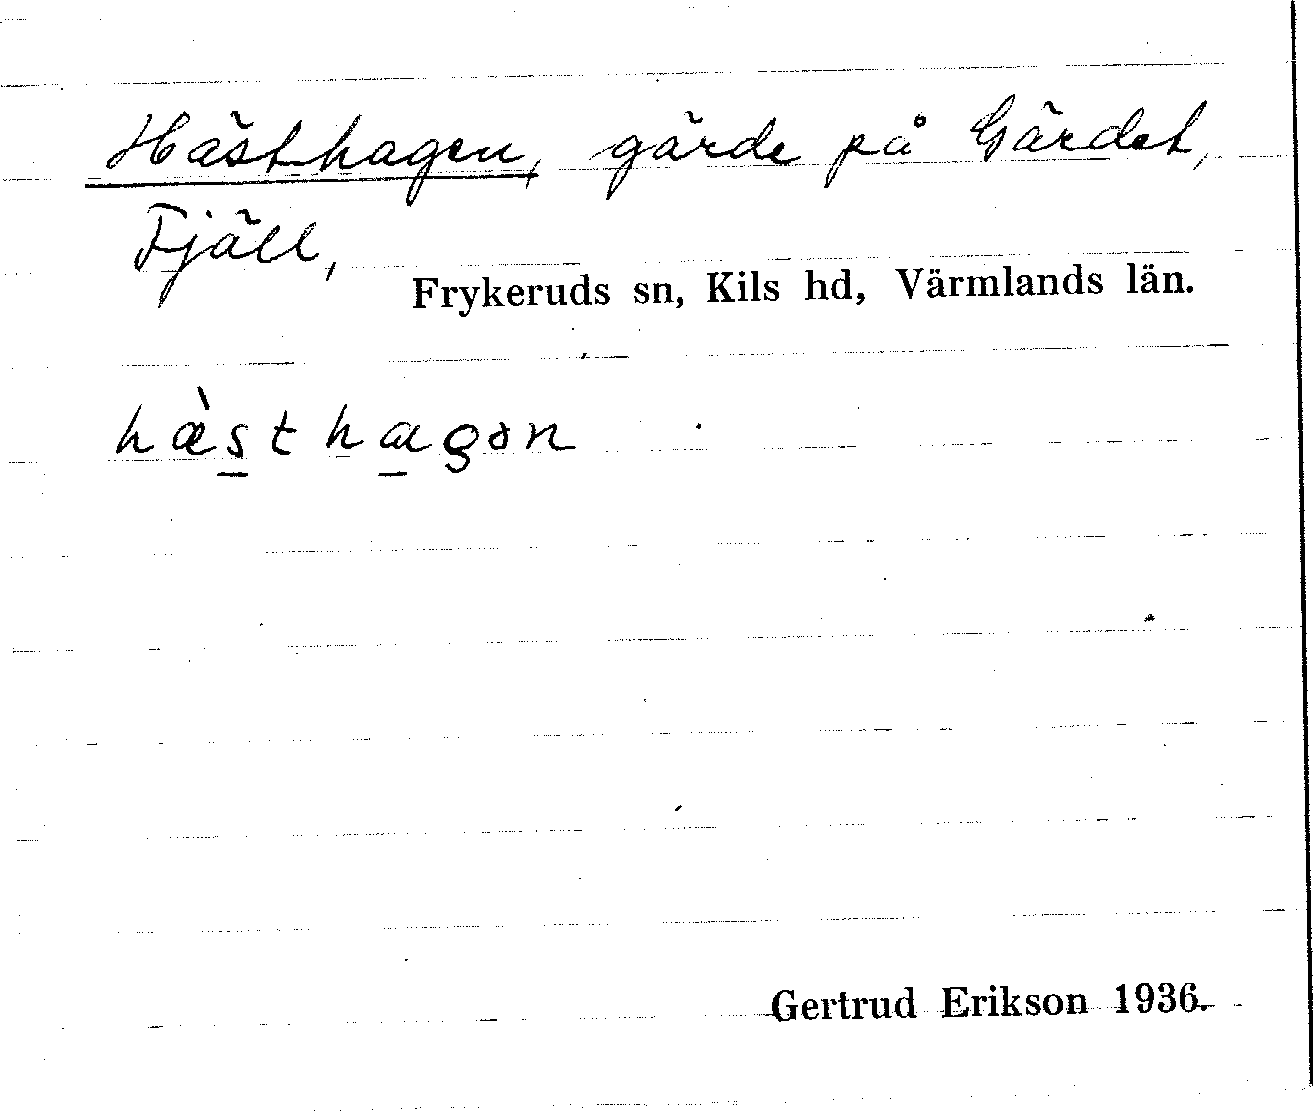 Hästhagen, gärde på Gärdet,
Fjäll,
Frykeruds sn, Kils hd, Värmlands län.
hæ̀s̲thɑ̲gən
Gertrud Erikson 1936.